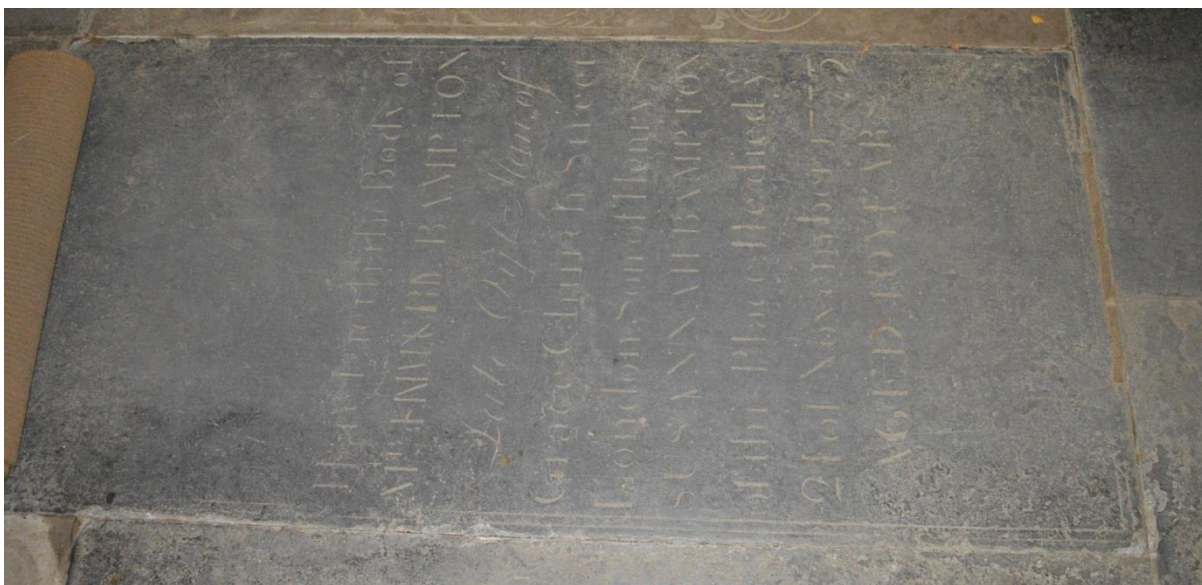 Here Lyeth the Body of
BAMPTON
Late Oyle=Man of
Grace Church Street
London Son of Henry
SUSANNAH BAMPTON
of this Place He died
of November
AGED YEARS